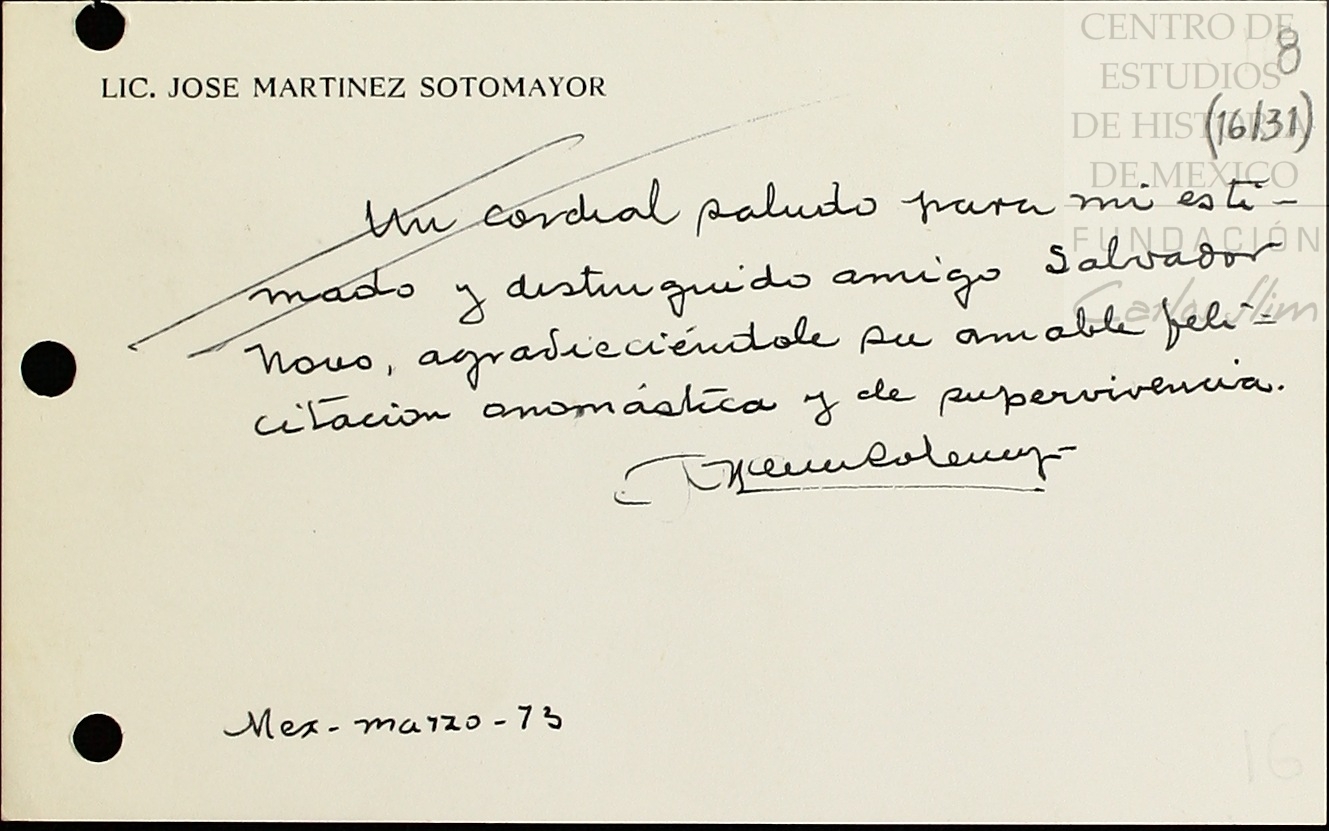 CENTRO DE
ESTUDIOS
DE HISTORIA
DE MEXICO
FUNDACIÓN
Carlos Slim
8
(16/31)
LIC. JOSE MARTINEZ SOTOMAYOR
Un cordial saludo para mi esti-
mado y distinguido amigo Salvador
Novo, agradicciéndole su amable feli-
citacion onomástica y de supervivencia.
Mex- marzo - 73
16